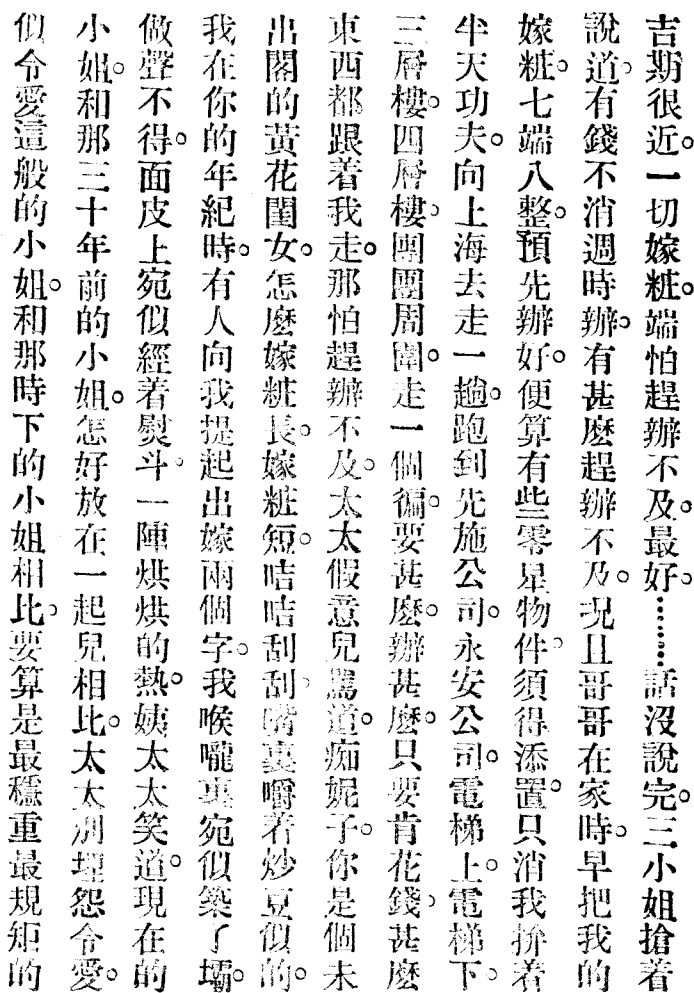 吉期很近。一切嫁粧。端怕趕辦不及。最好。………話沒說完。三小姐搶着
說道。有錢不消週時辦。有甚麽趕辦不及。况且哥哥在家時。早把我的
嫁粧。七端八整。預先辦好。便算有些零星物件。須得添置。只消我拚着
半天功夫。向上海去走一趟。跑到先施公司。永安公司。電梯上。電梯下。
三層樓。四層樓。團團周圍。走一個徧。要甚麽。辦甚麽。只要肯花錢。甚麽
東西都跟着我走。那怕趕辦不及。太太假意兒罵道。痴妮子。你是個未
出閣的黃花閨女。怎麽嫁粧長。嫁粧短。咭咭刮刮。嘴裏嚼着炒豆似的。
我在你的年紀時。有人向我提起出嫁兩個字。我喉嚨裏宛似築了壩。
做聲不得。面皮上宛似經着熨斗。一陣烘烘的熱。姨太太笑道。現在的
小姐。和那三十年前的小姐。怎好放在一起兒相比。太太別埋怨令愛。
似令愛這般的小姐。和那時下的小姐相比。要算是最穩重最規矩的